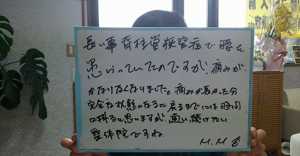 長い事脊柱管狭窄症で腰を
患らっていたのですが、痛みが
かなりなくなりました。痛みが長かった分
完全な状態になるに戻るまでには時間
は掛ると思いますが、通い続けたい
整体院ですね。
M.M